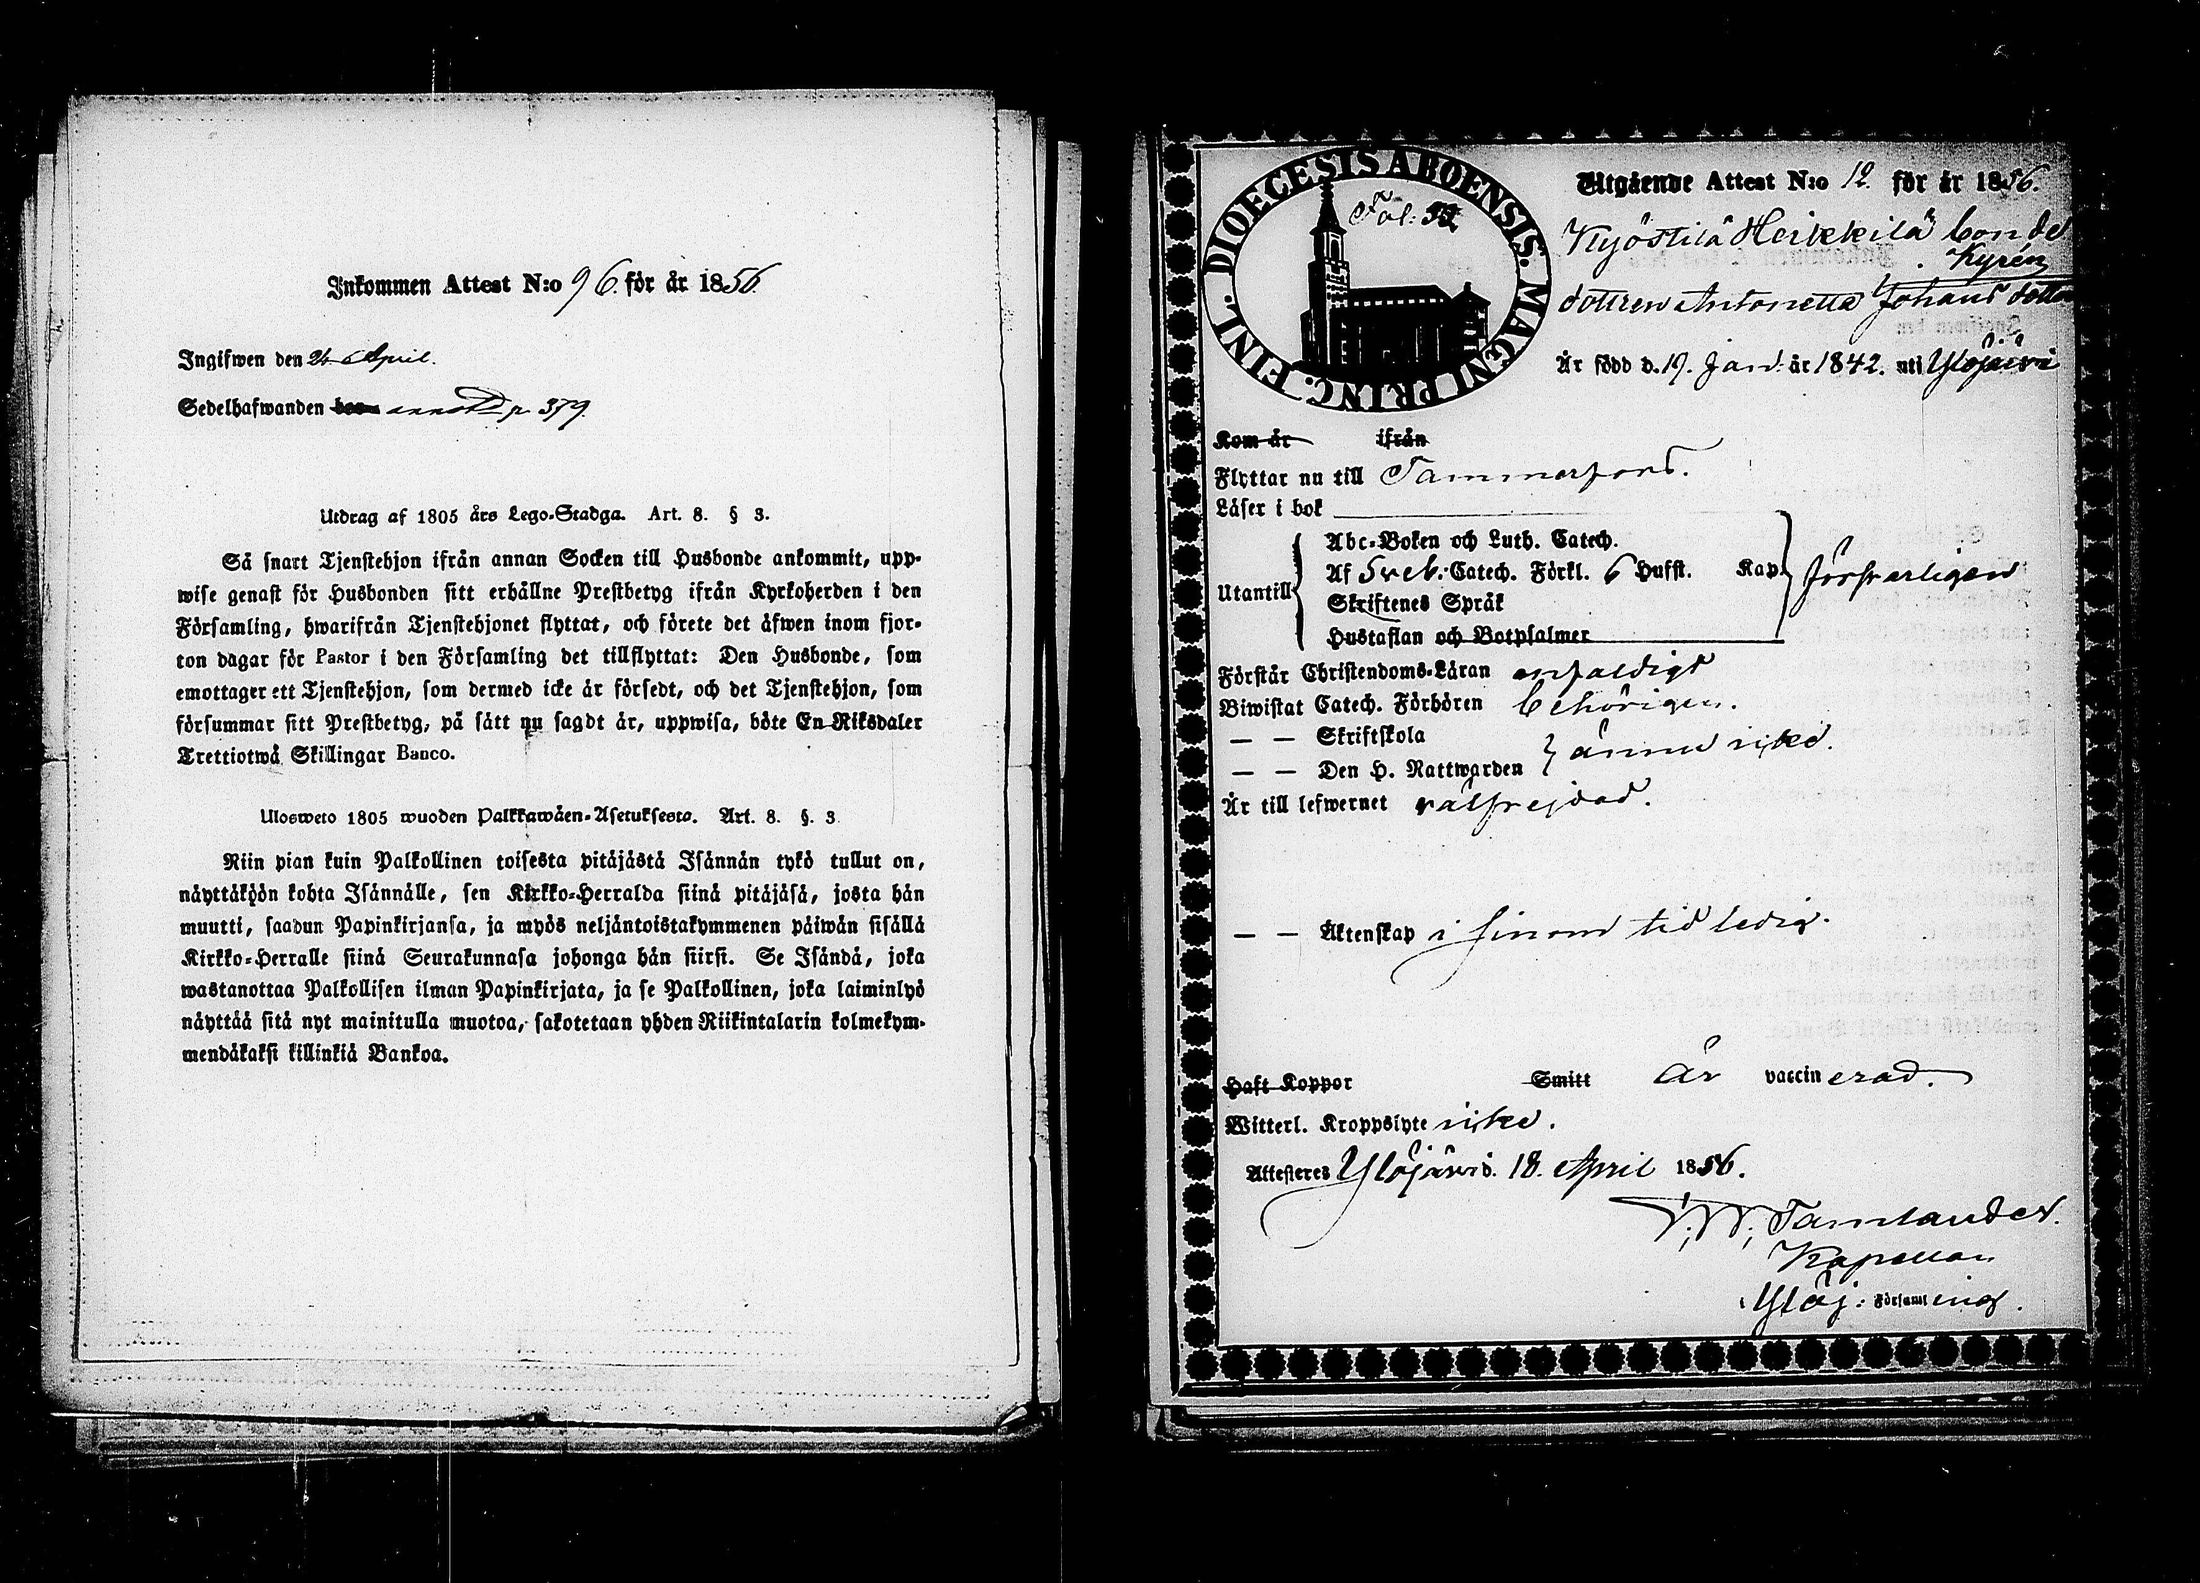 Inkommen Attest N:o 96. för år 1856.
Ingifwen den 24 April.
Sedelhafwanden boen annot p. 379.
Utdrag af 1805 års Lego-Stadga. Art. 8. § 3.
Så snart Tjenstehjon ifrån annan Socken till Husbonde ankommit, upp-
wise genast för Husbonden sitt erhållne Prestbetyg ifrån Kyrkoherden i den
Församling, hwarifrån Tjenstehjonet flyttat, och förete det äfwen inom fjor-
ton dagar för Pastor i den Församling det tillflyttat: Den Husbonde, som
emottager ett Tjenstehjon, som dermed icke är försedt, och det Tjenstehjon, som
försummar sitt Prestbetyg, på sätt nu sagdt är, uppwisa, böte En Riksdaler
Trettiotwå Skillingar Banco.
Ulosweto 1805 wuoden Palkkawäen-Asetuksesta. Art. 8. §. 3.
Niin pian kuin Palkollinen toisesta pitäjästä Isännän tykö tullut on,
näyttäköön kohta Isännälle, sen Kirkko-Herralda siinä pitäjäsä, josta hän
muutti, saadun Papinkirjansa, ja myös neljäntoistakymmenen päiwän sisällä
Kirkko-Herralle siinä Seurakunnasa johonga hän siirsi. Se Isändä, joka
wastanottaa Palkollisen ilman Papinkirjata, ja se Palkollinen, joka laiminlyö
näyttää sitä nyt mainitulla muotoa, sakotetaan yhden Riikintalarin kolmekym-
mendäkaksi killinkiä Bankoa.
DIOECESIS ABOENSIS. MAGNI PRINC. FINL.
Fol: 52
Utgående Attest N:o 12. för år 1856.
Kyöstilä Heikkilä bonde
Kyrén
dottren Antonetta Johans dotter
Är född d. 19. Jan. år 1842. uti Ylöjärvi
Kom år ifrån
Flyttar nu till Tammerfors.
Läser i bok
Utantill
Abc-Boken och Luth. Catech.
Af Sveb: Catech. Förkl. 6 Hufst. Kap.
Skriftenes Språk
Hustaflan och Botpsalmer
försvarligen
Förstår Christendoms-Läran enfaldigt
Biwistat Catech. Förhören behörigen.
— — Skriftskola
— — Den H. Nattwarden
ännu icke.
Är till lefwernet välfrejdad.
— — Äktenskap i sinom tid ledig.
Haft Koppor Smitt Är vaccinerad.
Witterl. Kroppslyte icke.
Attesteres Ylöjärvi d. 18. April 1856.
Tamlander.
Kapellan
Ylöj: Församling.